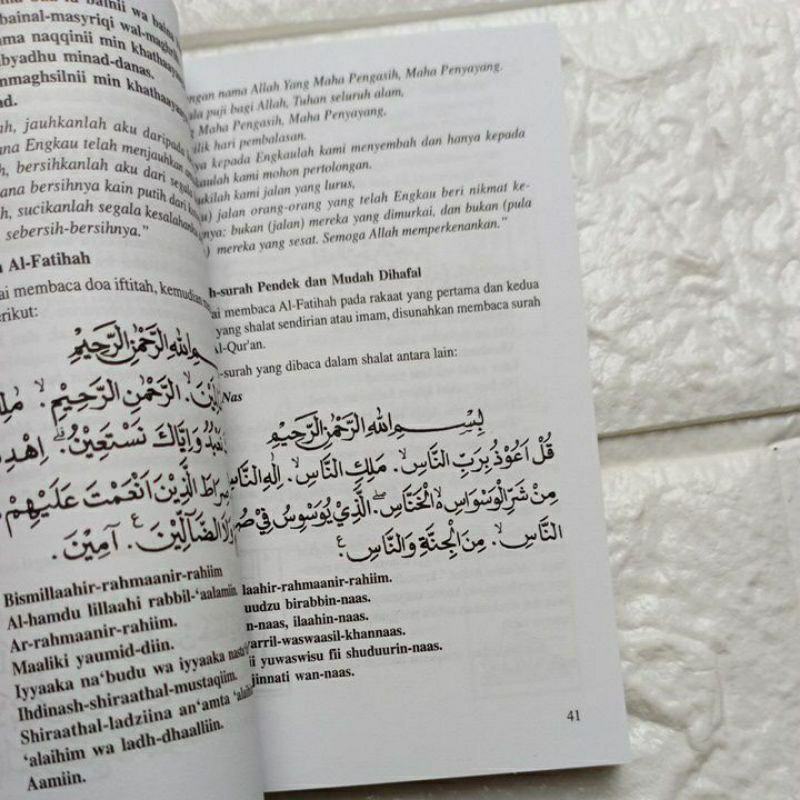 bainii wa baina
bainal-masyriqi wal-maghribi
naqqinii min khathaayaaya
minad-danas.
min khathaayaaya
jauhkanlah aku daripada
Engkau telah menjauhkan
bersihkanlah aku dari segala
bersihnya kain putih dari
sucikanlah segala kesalahanku
sebersih-bersihnya."
Al-Fatihah
membaca doa iftitah, kemudian
بِسْمِ اللهِ الرَّحْمٰنِ الرَّحِيْمِ
الرَّحْمٰنِ الرَّحِيْمِۙ
وَاِيَّاكَ نَسْتَعِيْنُۗ اِهْدِ
الَّذِيْنَ اَنْعَمْتَ عَلَيْهِمْ
الضَّآلِّيْنَ. آمِيْنَ.
Bismillaahir-rahmaanir-rahiim
Al-hamdu lillaahi rabbil-‘aalamiin.
Ar-rahmaanir-rahiim.
Maaliki yaumid-diin.
Iyyaaka na‘budu wa iyyaaka
Ihdinash-shiraathal-mustaqiim.
Shiraathal-ladziina an‘amta ‘alaihim
‘alaihim wa ladh-dhaalliin.
Aamiin.
nama Allah Yang Maha Pengasih, Maha Penyayang.
puji bagi Allah, Tuhan seluruh alam,
Maha Pengasih, Maha Penyayang,
hari pembalasan.
kepada Engkaulah kami menyembah dan hanya kepada
kami mohon pertolongan.
kami jalan yang lurus,
jalan orang-orang yang telah Engkau beri nikmat ke-
bukan (jalan) mereka yang dimurkai, dan bukan (pula
mereka yang sesat. Semoga Allah memperkenankan."
h-surah Pendek dan Mudah Dihafal
ai membaca Al-Fatihah pada rakaat yang pertama dan kedua
yang shalat sendirian atau imam, disunahkan membaca surah
Al-Qur'an.
-surah yang dibaca dalam shalat antara lain:
Nas
بِسْمِ اللهِ الرَّحْمٰنِ الرَّحِيْمِ
قُلْ اَعُوْذُ بِرَبِّ النَّاسِۙ. مَلِكِ النَّاسِۙ. اِلٰهِ النَّاسِ
مِنْ شَرِّ الْوَسْوَاسِ ەۙ الْخَنَّاسِۖ. الَّذِيْ يُوَسْوِسُ فِيْ
النَّاسِۙ. مِنَ الْجِنَّةِ وَالنَّاسِ.
laahir-rahmaanir-rahiim.
uudzu birabbin-naas.
n-naas, ilaahin-naas.
arril-waswaasil-khannaas.
ii yuwaswisu fii shuduurin-naas.
jinnati wan-naas.
41